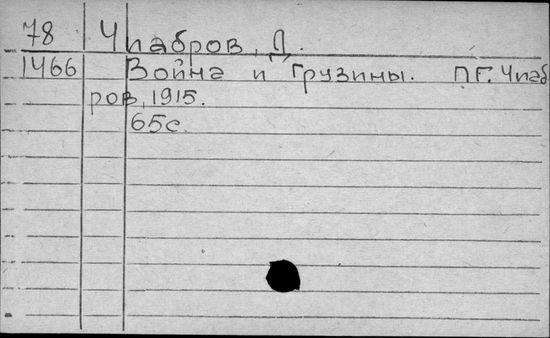 78 Чиабров, Д.
1466 Война и Грузины. ПГ. Чиаб
ров, 1915.
65с.